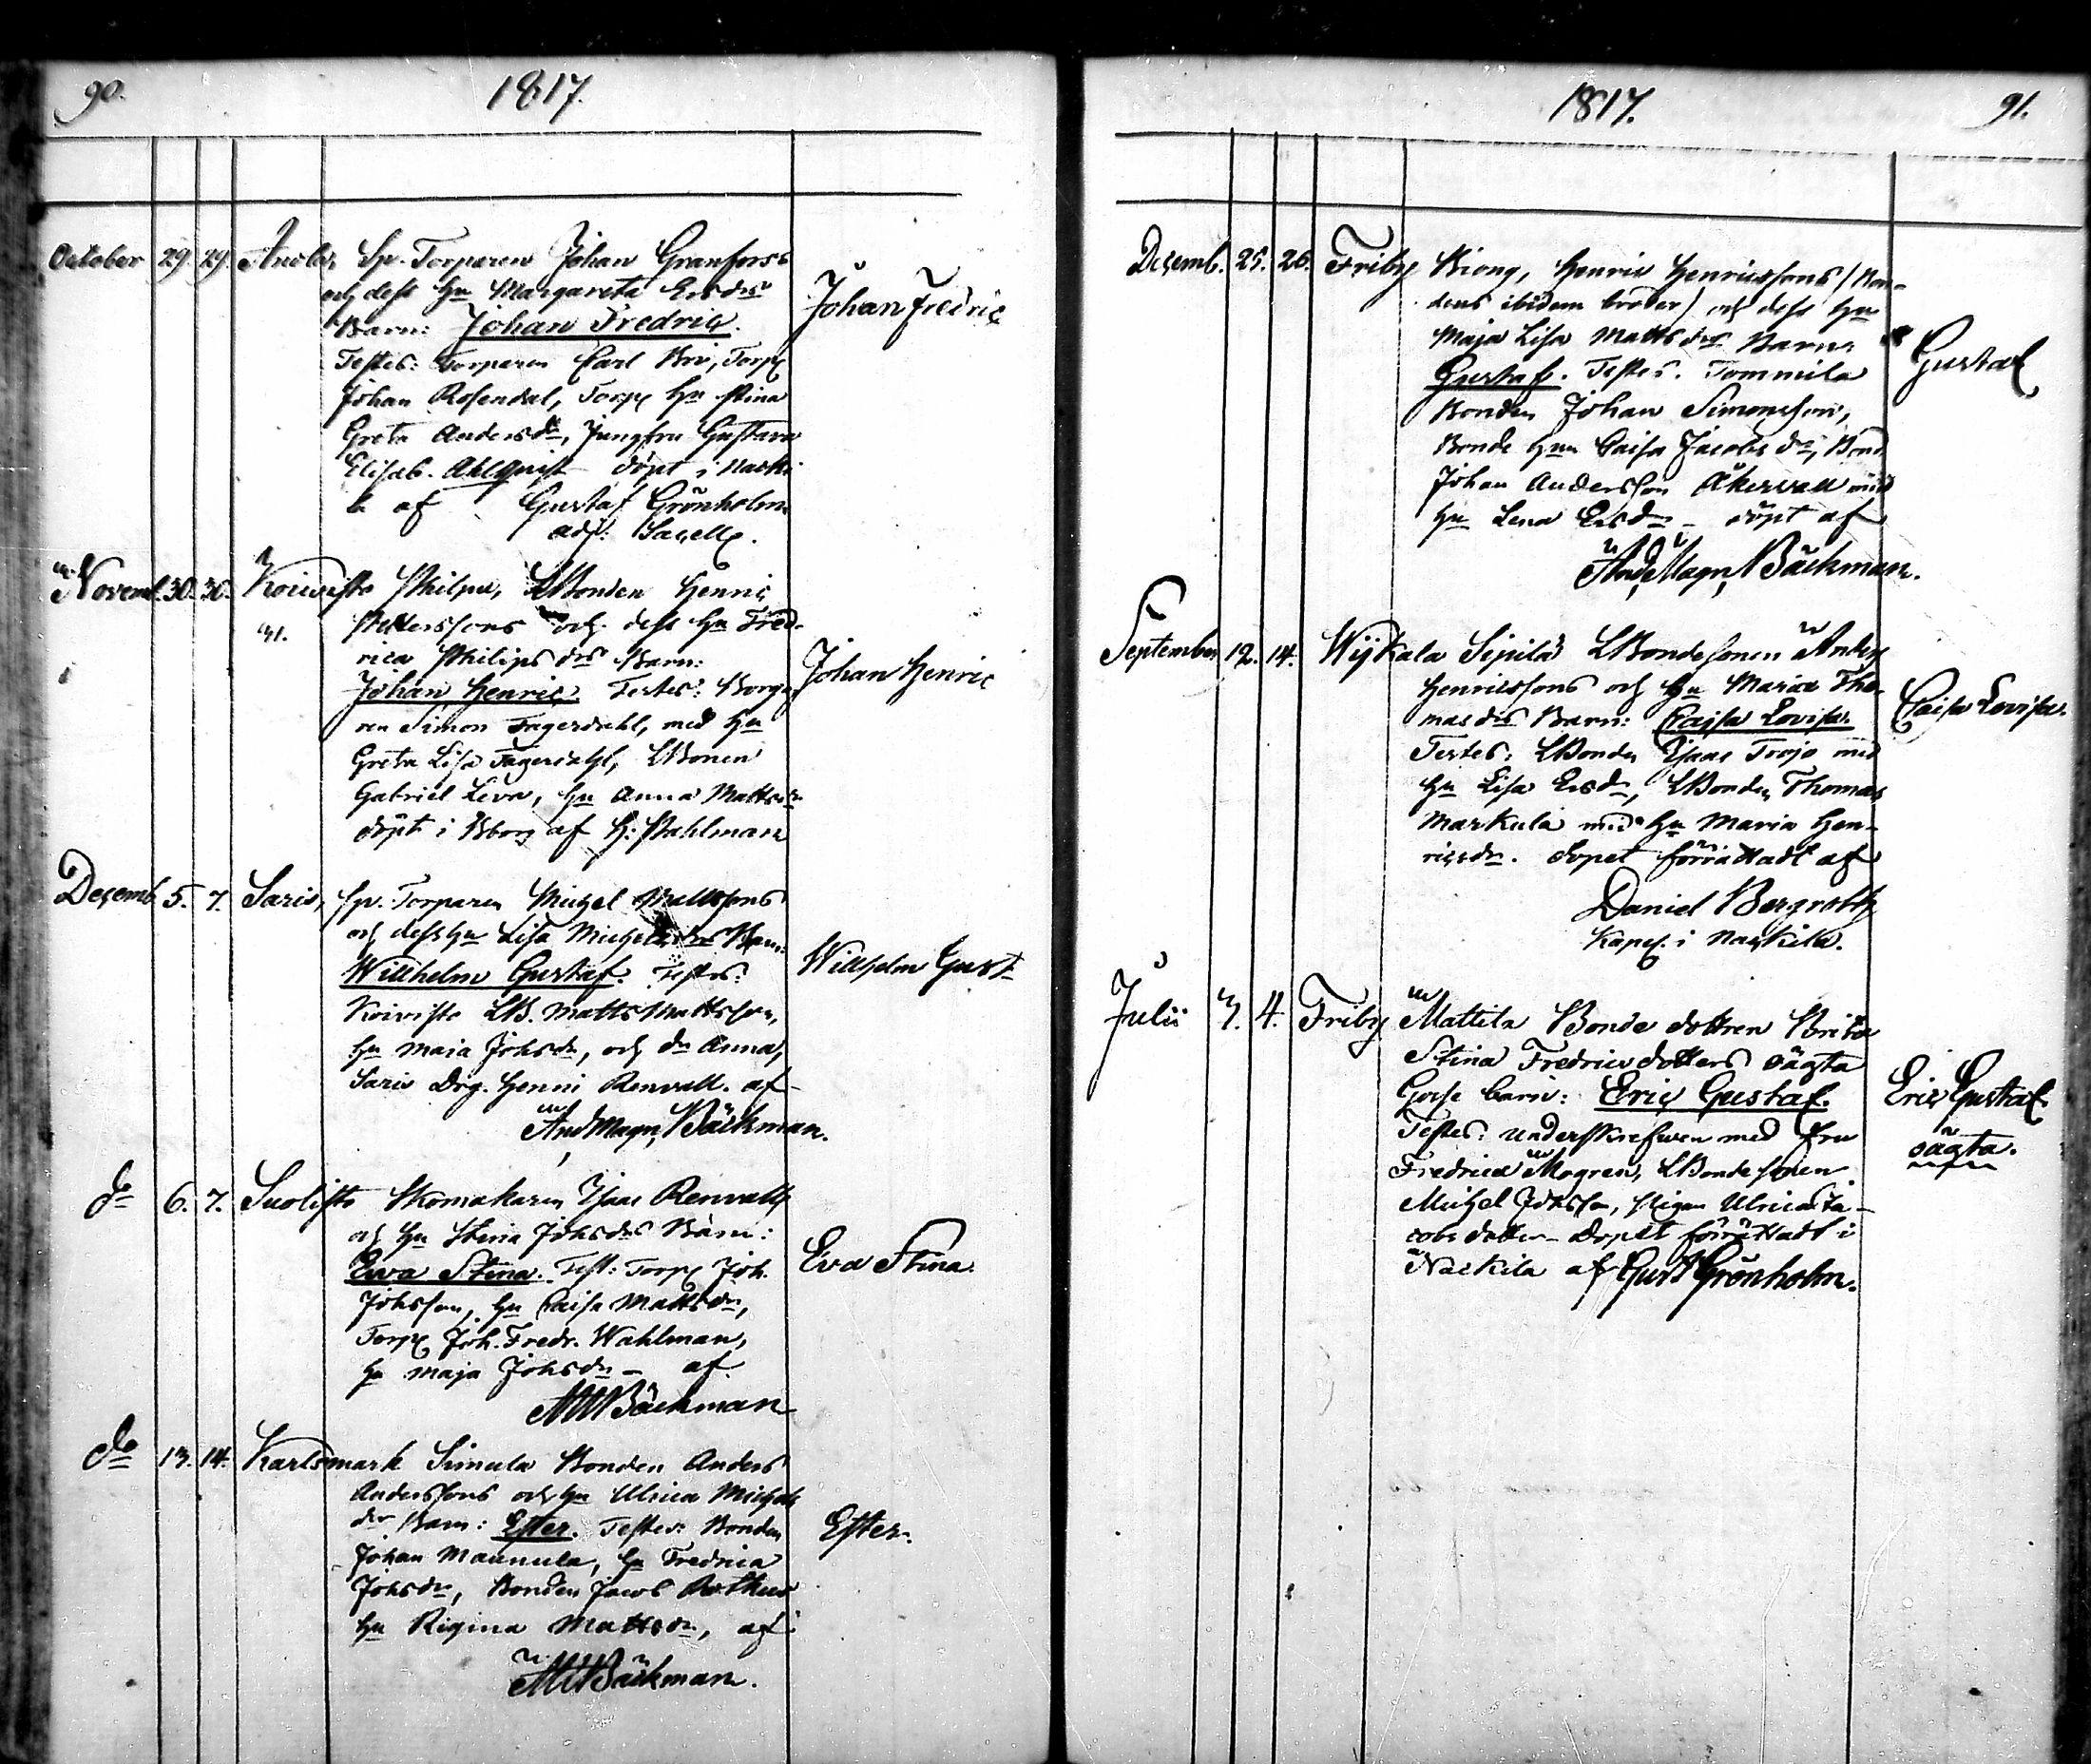 90.
1817.
October 29. 29. Anola, Sp. Torparen Johan Granforss
och dess Hu Margareta Ersdrs
Barn: Johan Fredric.
Johan Fredric
Testes: Torparen Carl Bri, Torp
Johan Rosendal, Torp Hu Stina
Greta Andersdr, Jungfru Gustava
Elisab. Ahlquist döpt i Nacki
la af Gustaf Grönholm
adj: Sacell.
Novemb. 30. 30. Koivisto Philpu, LBonden Henric
31. Pettersons och dess Hu Fred-
rica Philips drs Barn:
Johan Henric. Testes: Borga
Johan Henric
ren Simon Fagerdahl, med Hu
Greta Lisa Fagerdahl, LBonen
Gabriel Leva, Hu Anna Mattsdr
döpt i Bborg af H: Stahlman
Decemb. 5. 7. Saris, Sp. Torparen Michel Mattsons
och dess Hu Lisa Michels drs Barn:
Willhelm Gustaf. Testes:
Willhelm Gust
Koivisto LB. Matts Mattsson,
Hu Maia Johsdr, och dr Anna,
Saris Drg. Henric Renvall. af
And Magn, Bäckman.
do 6. 7. Suolisto Skomakaren Isaac Renvalls
och Hu Stina Johsdrs Barn:
Ewa Stina. Test: Torp Joh.
Eva Stina.
Johsson, Hu Caisa Mattsdr,
Torp Joh. Fredr. Wahlman,
Hu Maja Johsdr – af
AMBäckman
do 13. 14. Karlsmark Simula Bonden Anders
Anderssons och Hu Ulrica Michels
dr Barn: Ester. Testes: Bonden
Ester.
Johan Maunula, Hu Fredrica
Johsdr, Bonden Jacob
Hu Rigina Mattsdr, af
AMBäckman.
1817.
91.
Decemb. 25. 26. Friby Kiong, Henric Henricssons (Bon-
dens ibidem broder) och dess Hu
Maja Lisa Matts drs Barn
Gustaf. Testes. Tommila
Gustaf
Bonden Johan Simonsson,
Bonde Hun Caisa Jacobs dr, Bond.
Johan Andersson Åkervall med
Hu Lena Ersdr – döpt af
And, Magn, Bäckman.
September 12. 14. Wijkala Sipilä LBondesonen Anders
Henricssons och Hu Maria Tho-
mas drs Barn: Cajsa Lovisa.
Caisa Lovisa.
Testes: LBonden Isaac Trojo med
Hu Lisa Ersdr, LBonden Thomas
Markula med Hu Maria Hen-
ricsdr. dopet förrättadt af
Daniel Bergroth
Kapel. i Nackila.
Julii 3. 4. Friby Mattila Bonde dottren Brita
Stina Fredricsdotters oägta
Gosse barn: Eric Gustaf.
Eric Gustaf
oägta.
Testes: underskrefwen med fru
Fredrica Mogren, LBondesonen
Michel Johsson, pigan Ulrica Ja-
cobs dotter – Dopet förrättadt i
Nackila af Gust Grönholm.